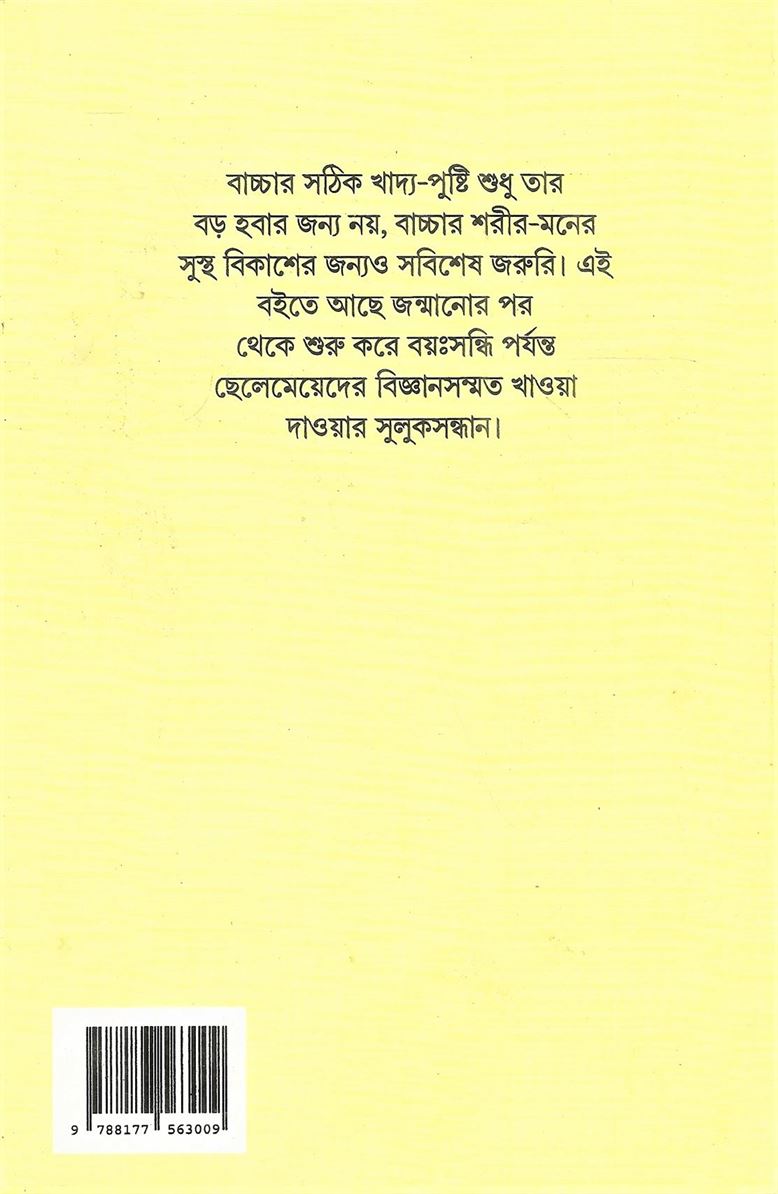 বাচ্চার সঠিক খাদ্য-পুষ্টি শুধু তার
বড় হবার জন্য নয়, বাচ্চার শরীর-মনের
সুস্থ বিকাশের জন্যও সবিশেষ জরুরি। এই
বইতে আছে জন্মানোর পর
থেকে শুরু করে বয়ঃসন্ধি পর্যন্ত
ছেলেমেয়েদের বিজ্ঞানসম্মত খাওয়া
দাওয়ার সুলুকসন্ধান।
9 788177 563009